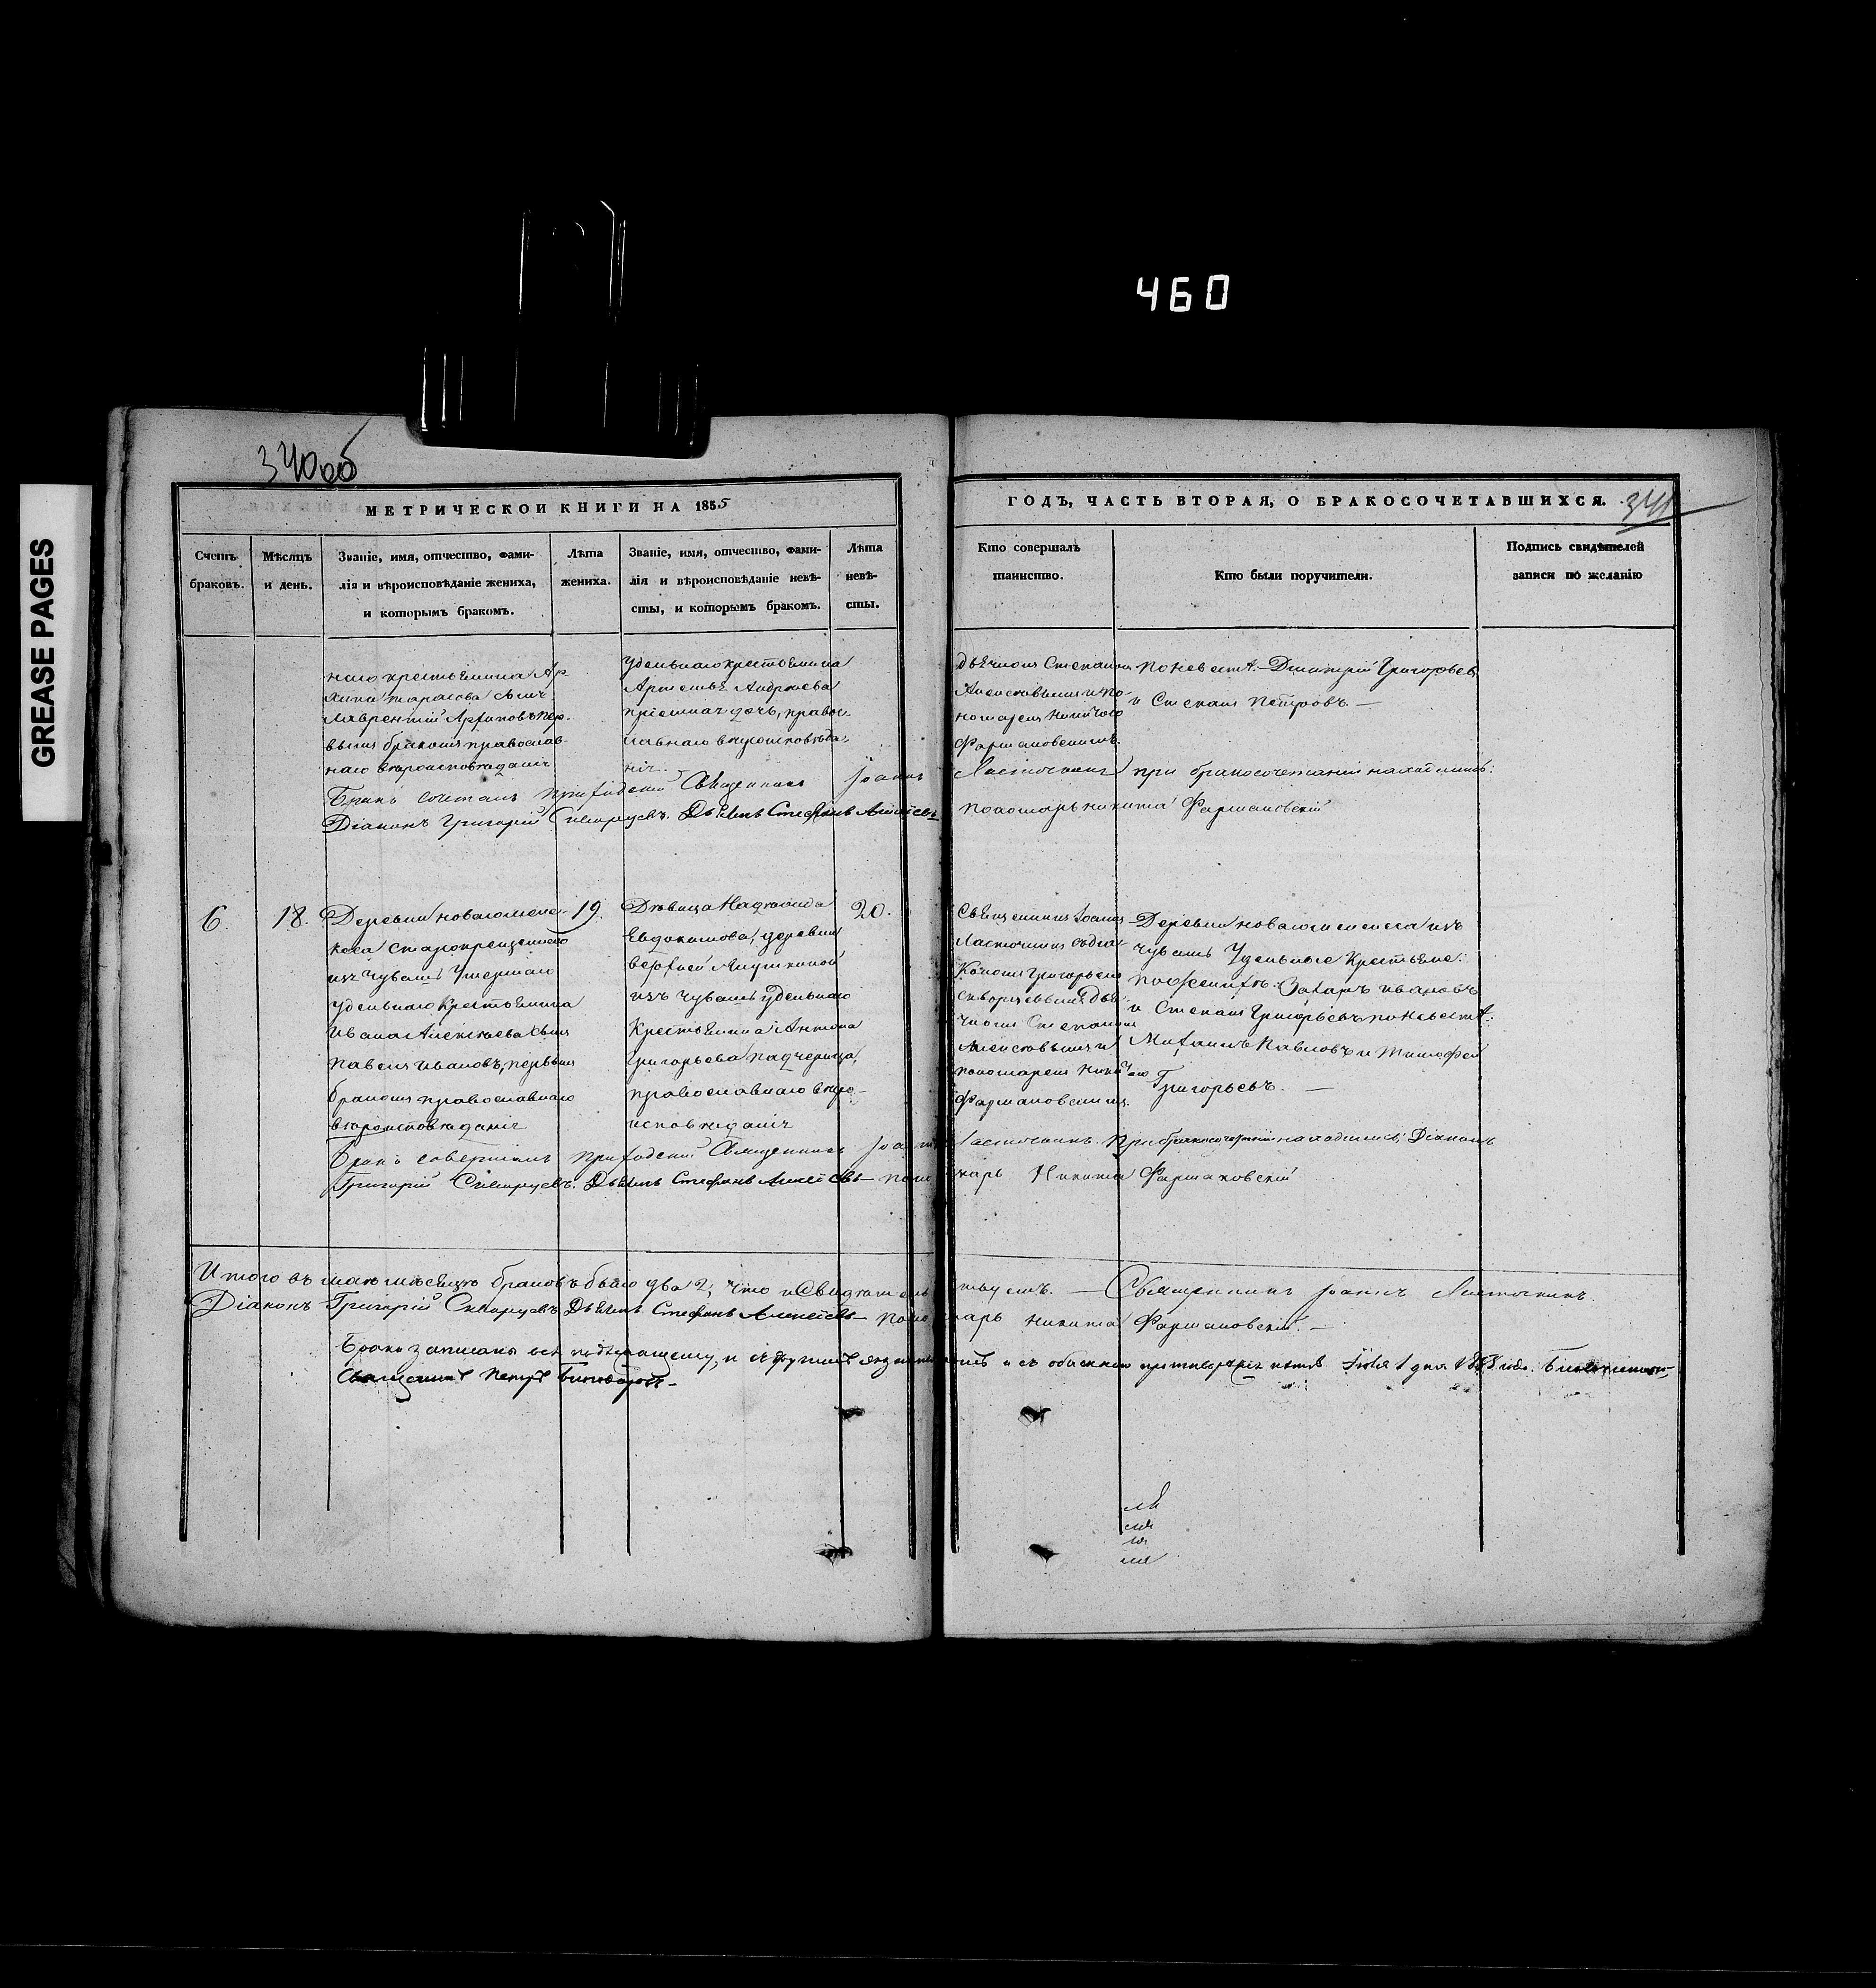 460
GREASE PAGES
340об
341
МЕТРИЧЕСКОЙ КНИГИ НА 1855
ГОДЪ, ЧАСТЬ ВТОРАЯ, О БРАКОСОЧЕТАВШИХСЯ.
Счетъ
браковъ.
Мѣсяцъ
и день.
Званіе, имя, отчество, фами-
лія и вѣроисповѣданіе жениха,
и которымъ бракомъ.
Лѣта
жениха.
Званіе, имя, отчество, фами-
лія и вѣроисповѣданіе невѣ-
сты, и которымъ бракомъ.
Лѣта
невѣ-
сты.
Кто совершалъ
таинство.
Кто были поручители.
Подпись свидѣтелей
записи по желанію
наго крестьянина Ар
хипа Тарасова сынъ
Лаврентій Архиповъ пер-
вымъ бракомъ православ-
наго вѣроисповѣданія
удѣльнаго крестьянина
Артемья Андреева
пріемная дочь, право-
славнаго вѣроисповѣда-
нія.
дьячкомъ Степаномъ
Алексѣевымъ и по-
номаремъ Никитою
Фармаковскимъ.
по невѣстѣ: Дмитрій Григорьевъ
и Степанъ Петровъ. —
Бракъ сочеталъ приходскій Священникъ Іоаннъ Ласточкинъ при бракосочетаніи находились:
Діаконъ Григорій Скворцевъ. Дьячекъ Стефанъ Алексѣевъ пономарь Никита Фармаковскій
6.
18.
Деревни новаго
старокрещенаго
изъ Чувашъ Умершаго
удѣльнаго Крестьянина
Ивана Алексѣева сынъ
Павелъ Ивановъ, первымъ
бракомъ православнаго
вѣроисповѣданія
19.
Дѣвица Надежда
Евдокимова, деревни
верхней
изъ Чувашъ удѣльнаго
Крестьянина Антона
Григорьева падчерица,
православнаго вѣро-
исповѣданія
20.
Священникъ Іоаннъ
Ласточкинъ съ діа-
кономъ Григорьемъ
Скворцевымъ дья-
чкомъ Степаномъ
Алексѣевымъ и
пономаремъ Никитою
Фармаковскимъ.
Деревни новаго изъ
Чувашъ Удѣльные Крестьяне:
по женихѣ: Захаръ Ивановъ
и Степанъ Григорьевъ по невѣстѣ:
Михаилъ Павловъ и Тимофей
Григорьевъ. —
Бракъ совершалъ приходскій Священникъ Іоаннъ Ласточкинъ. При бракосочетаніи находились: Діаконъ
Григорій Скворцевъ. Дьячекъ Стефанъ Алексѣевъ — пономарь Никита Фармаковскій
Итого въ маѣ мѣсяцѣ браковъ было два 2, что и Свидѣтельствуемъ. — Священникъ Іоаннъ Ласточкинъ.
Діаконъ Григорій Скворцевъ Дьячекъ Стефанъ Алексѣевъ — пономарь Никита Фармаковскій. —
Браки записаны всѣ по надлежащему, и съ Іюля 1 дня года.
Священникъ Петръ